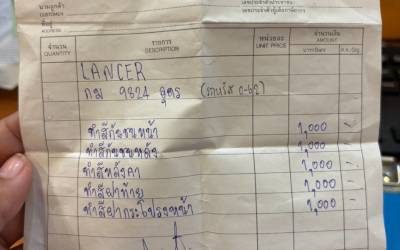 นามลูกค้า
CUSTOMER
ที่อยู่
ADDRESS
เลขประจำตัวประชาชน
เลขประจำตัวผู้เสียภาษีอากร
จำนวน รายการ หน่วยละ จำนวนเงิน
QUANTITY DESCRIPTION UNIT PRICE AMOUNT
LANCER
กม 9624 อุดร
ทำสีกันชนหน้า 1,000 -
ทำสีกันชนหลัง 1,000 -
ทำสีหลังคา 1,000 -
ทำสีฝาท้าย 1,000 -
ทำสีฝากระโปรงหน้า 1,000 -